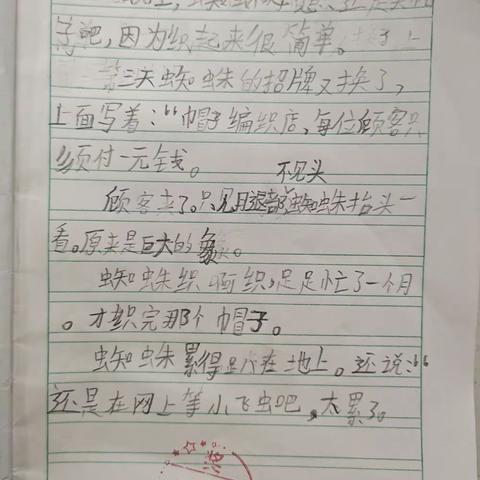 子吧,因为织起来很简单。
第三天蜘蛛的招牌又换了,
上面写着:“帽子编织店,每位顾客只
须付一元钱。
不见头
顾客来了。只见腿部蜘蛛抬头一
看。原来是巨大的象。
蜘蛛织啊织,足足忙了一个月
。才织完那个帽子。
蜘蛛累得趴在地上。还说:“
还是在网上等小飞虫吧,太累了。